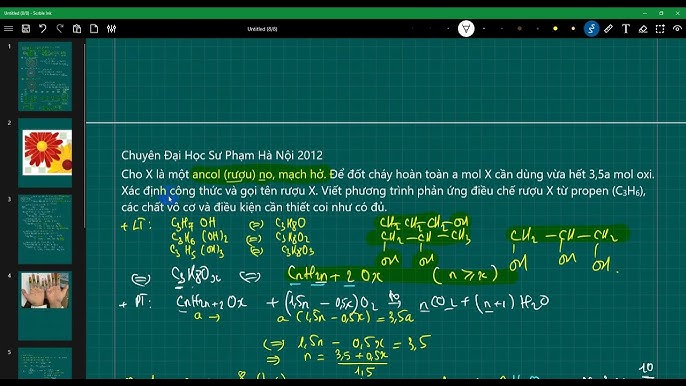 Untitled (8/8) - Scrble Ink
Untitled (8/8)
Chuyên Đại Học Sư Phạm Hà Nội 2012
Cho X là một ancol (rượu) no, mạch hở. Để đốt cháy hoàn toàn a mol X cần dùng vừa hết 3,5a mol oxi.
Xác định công thức và gọi tên rượu X. Viết phương trình phản ứng điều chế rượu X từ propen (C3H6),
các chất vô cơ và điều kiện cần thiết coi như có đủ.
+ LT: C3H7 OH (=) C3H8O CH2 CH2 CH2 - OH
C3H6 (OH)2 (=) C3H8O2 CH2 - CH - CH3 CH2 - CH - CH2
C3H5 (OH)3 (=) C3H8O3 OH OH OH OH OH
(=) C3H8Ox (=) CnH2n+2Ox (n ≥ x)
+ PT: CnH2n+2Ox + (1,5n - 0,5x)O2 t0 → nCO2 + (n+1) H2O
a → a (1,5n - 0,5x) = 3,5a
(=) 1,5n - 0,5x = 3,5
=) n = 3,5 + 0,5x / 1,5
10
1
2
3
4
5